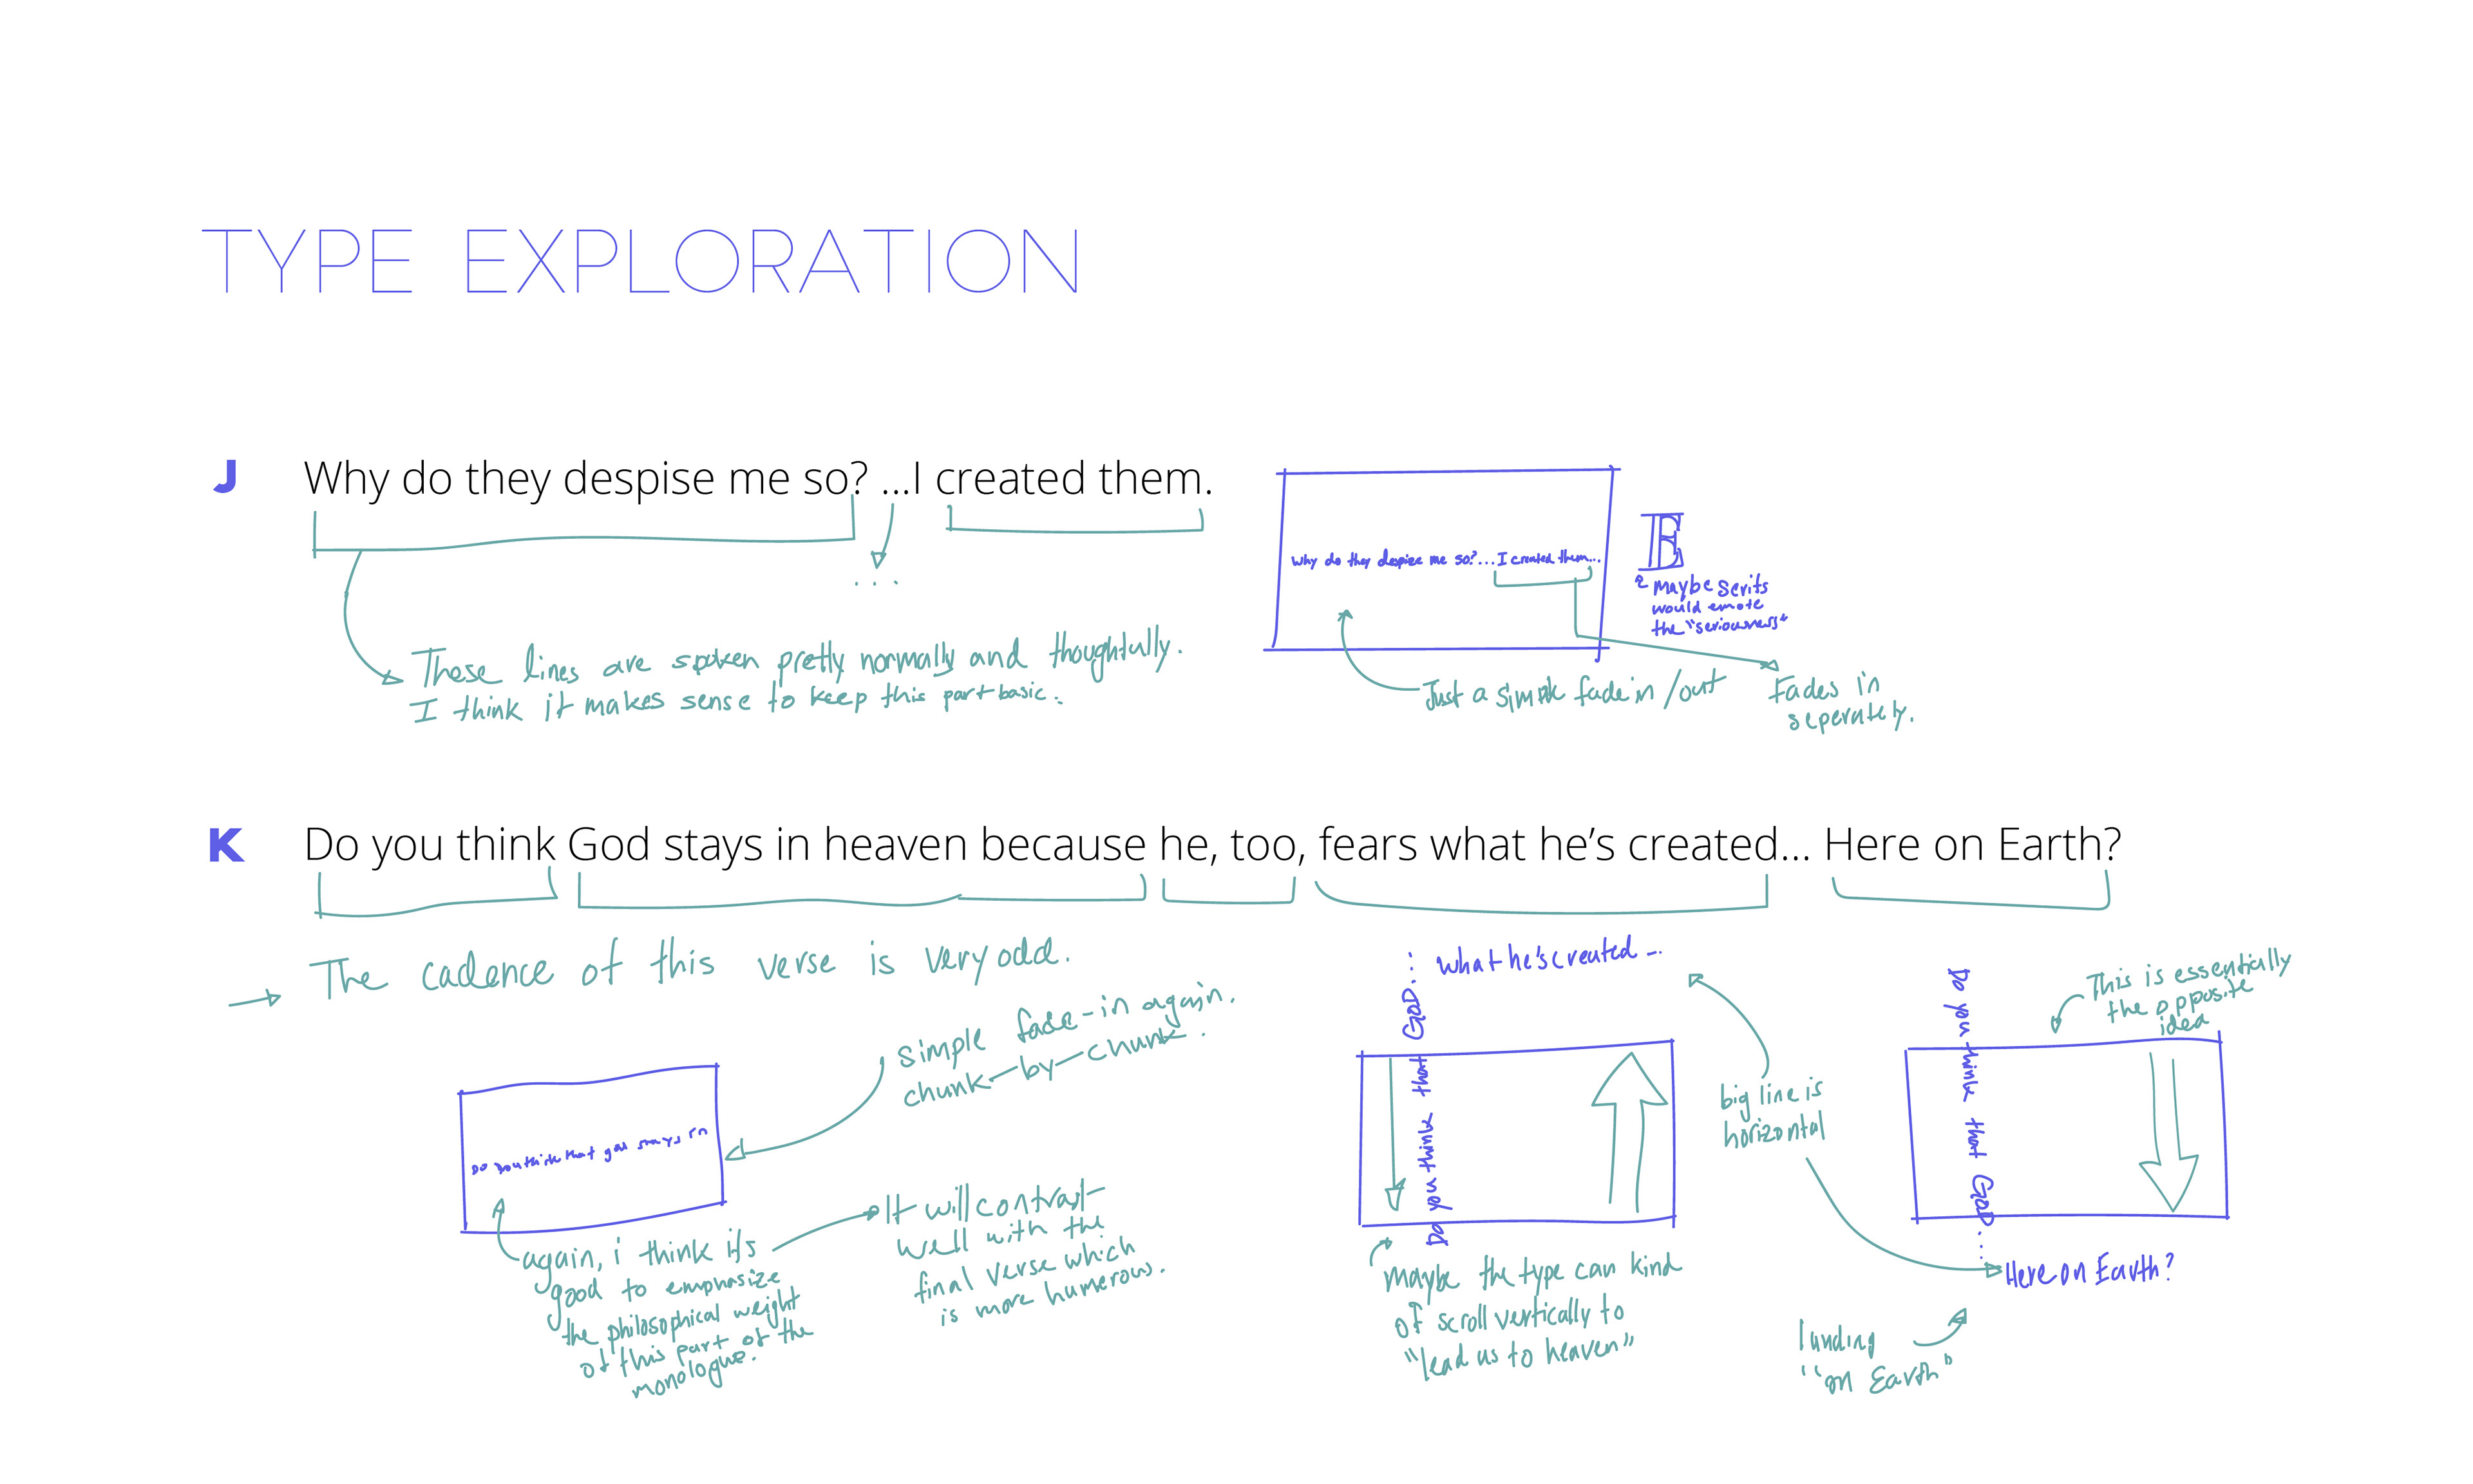 TYPE EXPLORATION
J
Why do they despise me so? ...I created them.
...
These lines are spoken pretty normally and thoughtfully.
I think it makes sense to keep this part basic.
Why do they despise me so?...I created them...
E
maybe serifs
would emote
the "seriousness"
Just a simple fade in/out
Fades in
seperately.
K
Do you think God stays in heaven because he, too, fears what he's created... Here on Earth?
The cadence of this verse is very odd.
simple fade-in again.
chunk-by-chunk.
Do you think that god stays in
again, i think it's
good to emphasize
the philosophical weight
of this part of the
monologue.
It will contrast
well with the
final verse which
is more humerous.
Do you think that GOD...
what he's created...
maybe the type can kind
of scroll vertically to
"lead us to heaven"
big line is
horizontal
Do you think that GOD...
This is essentially
the opposite
idea
Here on Earth?
landing
"on Earth"